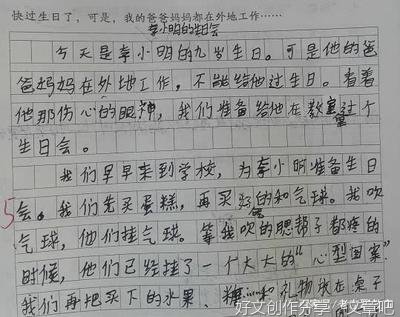 快过生日了，可是，我的爸爸妈妈都在外地工作……
李小明的生日会
今天是李小明的九岁生日。可是他的爸
爸妈妈在外地工作，不能给他过生日。看着
他那伤心的眼神，我们准备给他在教室过个
生日会。
我们早早来到学校，为李小明准备生日
会。我们先买蛋糕，再买好的和气球。我吹
气球，他们挂气球。等我吹的腮帮子都疼的
时候，他们已经挂了一个大大的“心型图案”
我们再把买下的水果、糖 礼物放在桌子
好文创作分享/文章吧